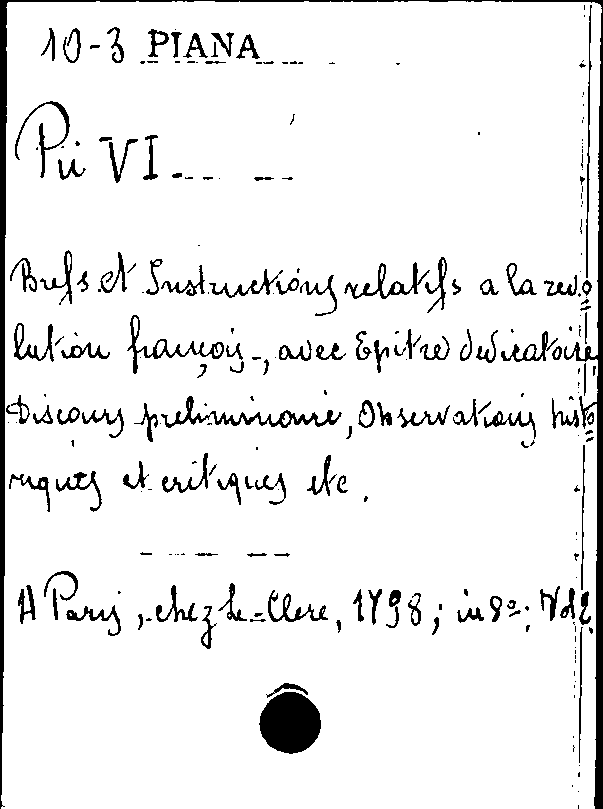 10-3 PIANA
Pii VI
Brefs et Instructions relatifs a la revo
lution françois-, avec Epitre dedicatoire,
Discours preliminaire, Observations histo
riques et critiques etc.
A Paris, chez Le-Clere, 1798; in 8º; Vol 2.